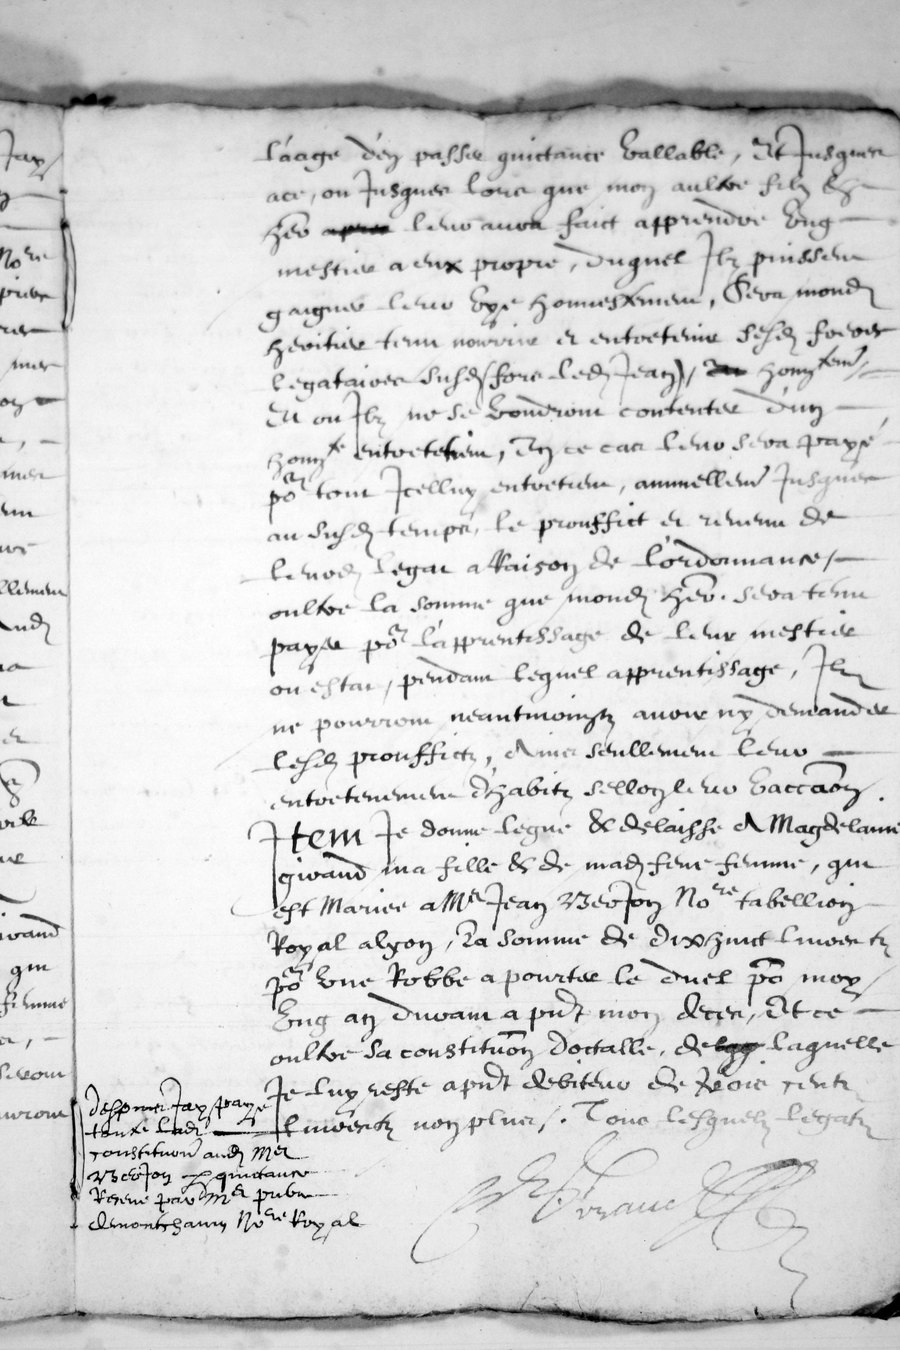 l'aage d'en passer quictance vallable, Et Jusques
a ce, ou Jusques lors que mon aultre filz &
her leur aura faict apprendre Ung
mestier a eux propre, duquel Ilz puissent
gaigner leur vye honnestement, Sera mond
heritier tenu nourrir et entretenir sesd freres
legataires susd (fors led Jean), honn.tem.t
Et ou Ilz ne se voudront contenter d'un
honn.te entretenement, En ce cas leur sera payé
po.r tout Icelluy entretien, annuellem.t Jusques
au susd temps, le prouffict et revenu de
leurd legat a Raison de l'ordonnance,
oultre la somme que mond her. sera tenu
payer po.r l'apprentissage de leur mestier
ou estat, pendant lequel apprentissage, Ilz
ne pourront neantmoingtz avoir ny demander
lesd prouffictz, Ains seullement leur
entretenement d'habitz sellon leur vaccaon
Item Je donne legue & delaisse A Magdelaine
giraud ma fille & de mad feue femme, qui
est Mariee a M.e Jean Verjon No.re tabellion
Royal a lyon, La somme de dixhuict livres tz
po.r Une Robbe a pourter le duel po.r moy
Ung an durant apndt mon deces, Et ce
oultre sa constituon doctalle, de laquelle
Je luy reste apndt debiteur de trois centz
livres tz non plus, Tous lesquelz legatz
Despuis Jay paye
toute lad
constitution aud M.e
Verjon p quictance
Receue par M.e
No.re Royal